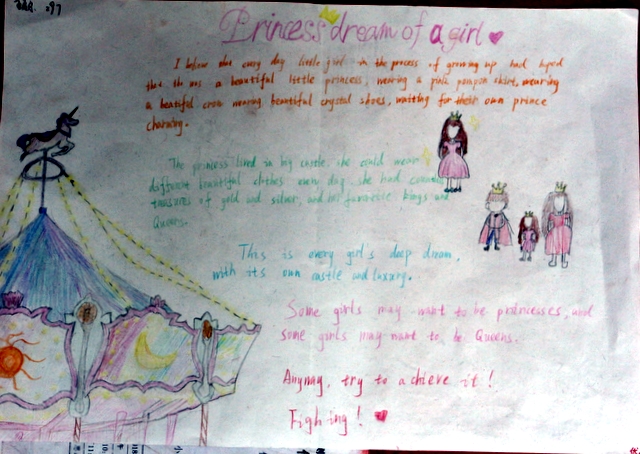 297
Princess dream of a girl
I believe that every day little girl in the process of growing up had hoped
that she was a beautiful little princess, wearing a pink pompon skirt, wearing
a beatiful crown wearing beautiful crystal shoes, waiting for their own prince
charming.
The princess lived in big castle, she could wear
different beautiful clothes every day, she had
treasures of gold and silver, and her favorite kings and
Queens.
This is every girl's deep dream,
with its own castle and luxury.
Some girls may want to be princesses, and
some girls may want to be Queens.
Anyway, try to achieve it!
Fighing!